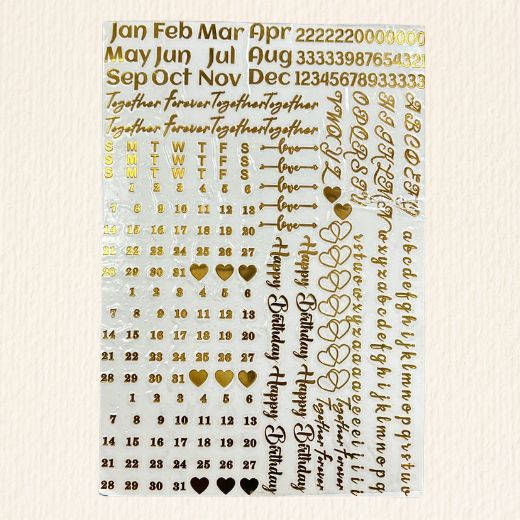 Jan Feb Mar Apr 22222200000000
May Jun Jul Aug 333339876543 21
Sep Oct Nov Dec 123456789 33333
Together Forever Together Together
Together Forever Together Together
S M T W T F S
S M T W T F S
S M T W T F S
1 2 3 4 5 6
7 8 9 10 11 12 13
14 15 16 17 18 19 20
21 22 23 24 25 26 27
28 29 30 31
1 2 3 4 5 6
7 8 9 10 11 12 13
14 15 16 17 18 19 20
21 22 23 24 25 26 27
28 29 30 31
1 2 3 4 5 6
7 8 9 10 11 12 13
14 15 16 17 18 19 20
21 22 23 24 25 26 27
28 29 30 31
love
love
love
love
love
Happy Birthday Happy Birthday
Happy Birthday Happy Birthday
Together Forever
Together Forever
abcdefghijklmnopqrstuv